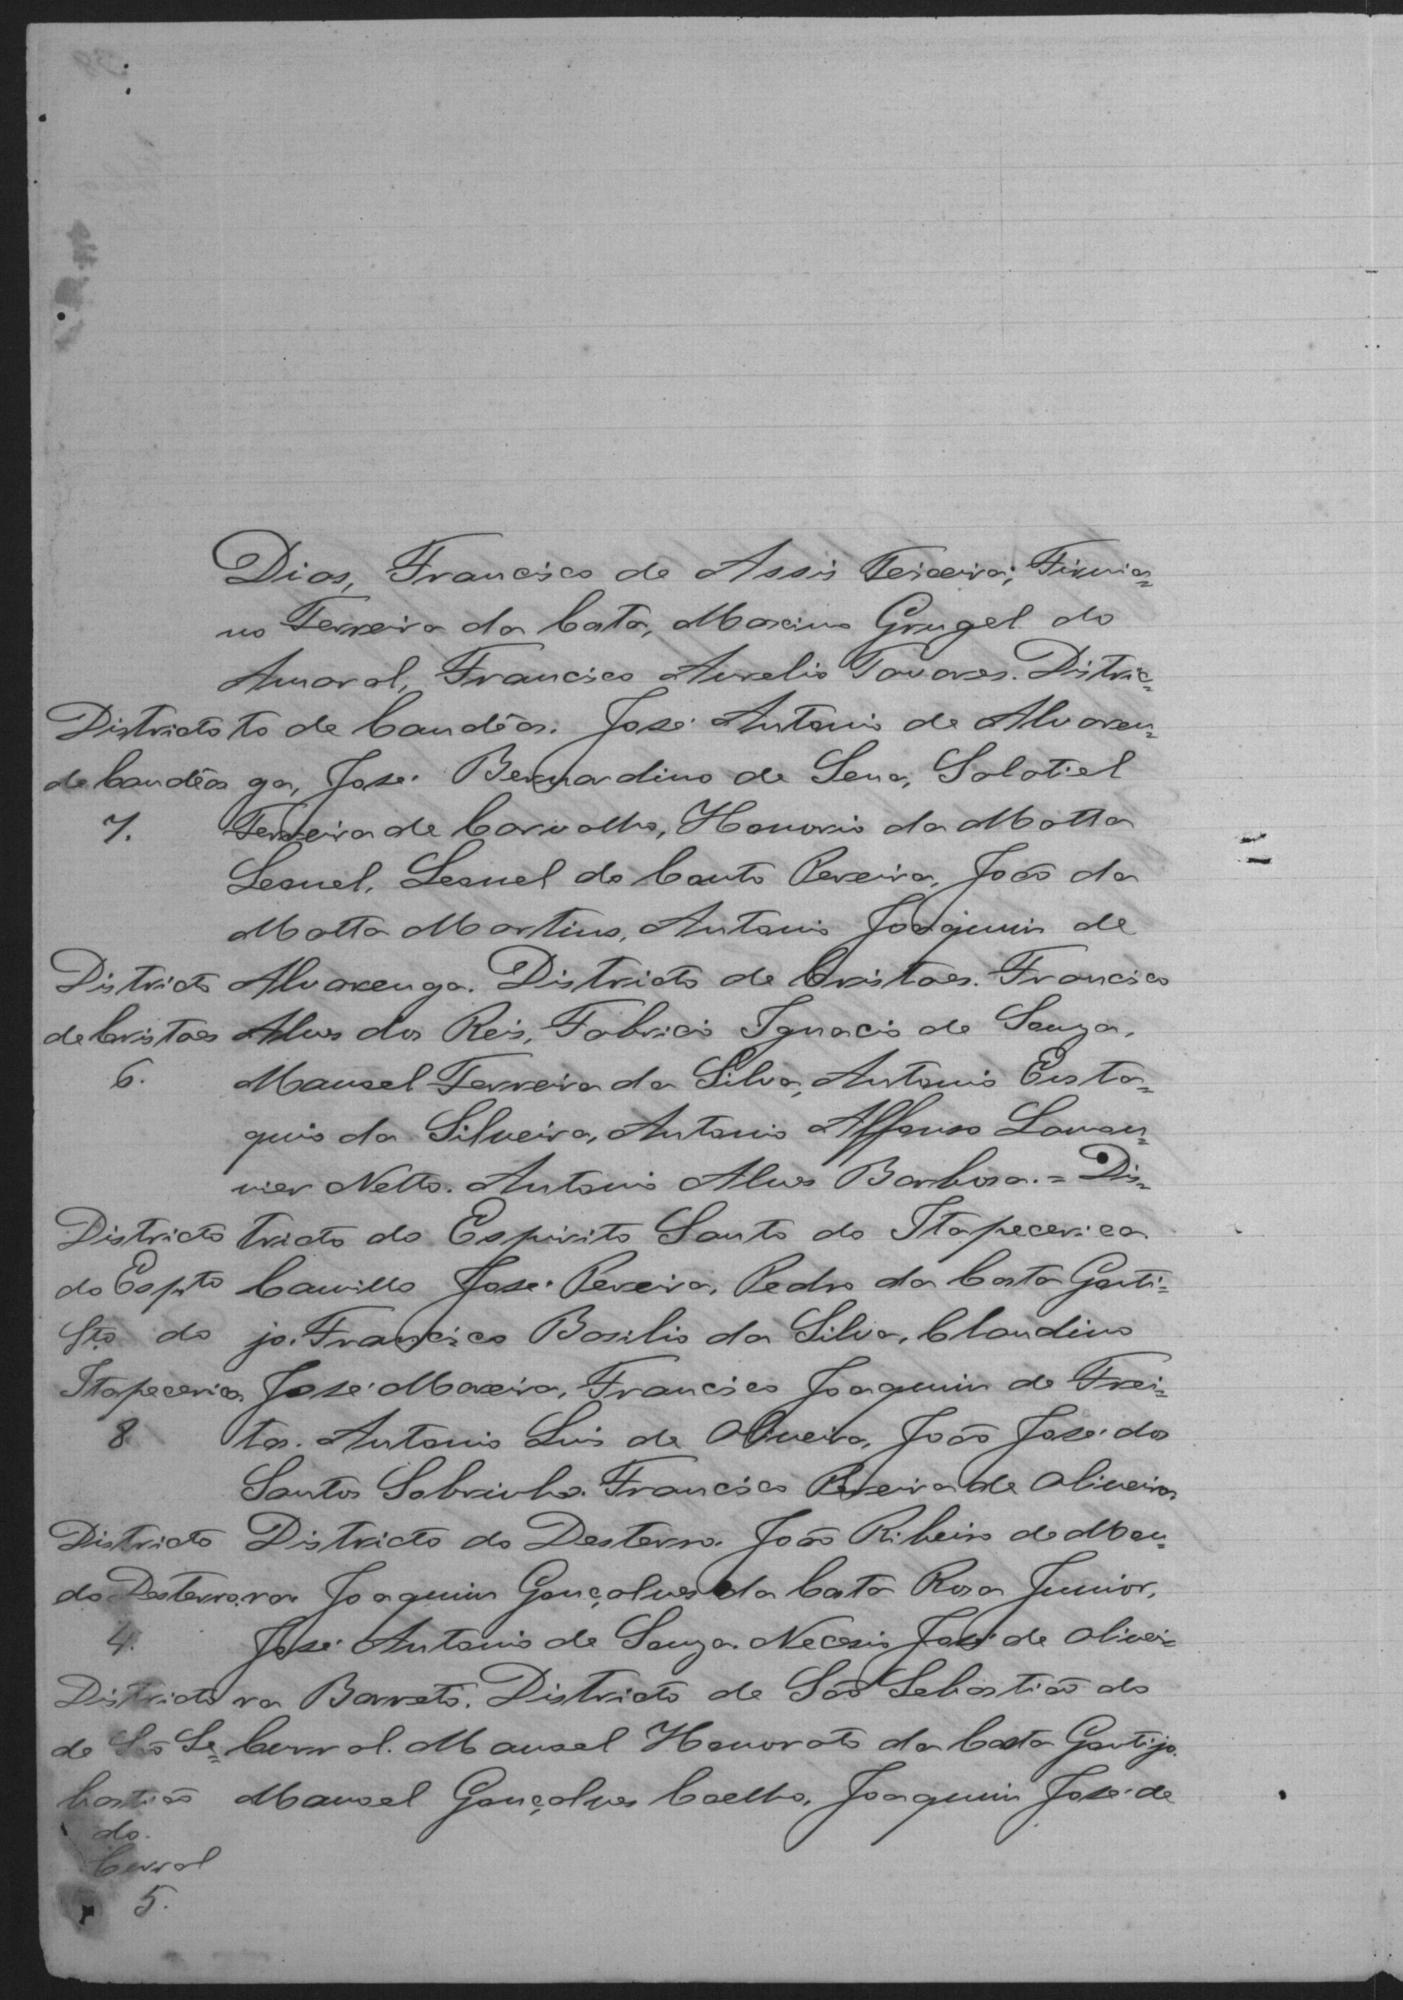 Dias, Francisco de Assis Teixeira; Firmia=
no Ferreira da Costa, Maximo Grugel do
Amaral, Francisco Aurelio Tavares. Distric=
Districto to de Candêas. José Antonio de Alvaren=
de Candêas ga, José Bernardino de Sena, Salatiel
7. Ferreira de Carvalho, Honorio da Motta
Leonel, Leonel do Couto Pereira, João da
Motta Martins, Antonio Joaquim de
Districto Alvarenga. Districto de Cristaes. Francisco
de Cristaes Alves dos Reis, Fabricio Ignacio de Souza,
6. Manoel Ferreira da Silva, Antonio Eusta=
quio da Silveira, Antonio Affonso Lamou=
nier Netto. Antonio Alves Barbosa. = Dis=
Districto tricto do Espirito Santo do Itapecerica
do Espto Camillo José Pereira, Pedro da Costa Gonti=
Sto do jo. Francisco Basilio da Silva, Claudino
Itapecerica José Moreira, Francisco Joaquim de Frei=
8 tas. Antonio Luis de Oliveira, João José dos
Santos Sobrinho. Francisco Pereira de Oliveira
Districto Districto do Desterro. João Ribeiro de Mou=
do Desterro ra. Joaquim Gonçalves da Costa Rosa Junior,
4. José Antonio de Souza. Necesio José de Olivei=
Districto ra Barreto. Districto de São Sebastião do
de São Se= Curral. Manoel Honorato da Costa Gontijo.
bastião Manoel Gonçalves Coelho, Joaquim José de
do
Curral
5.